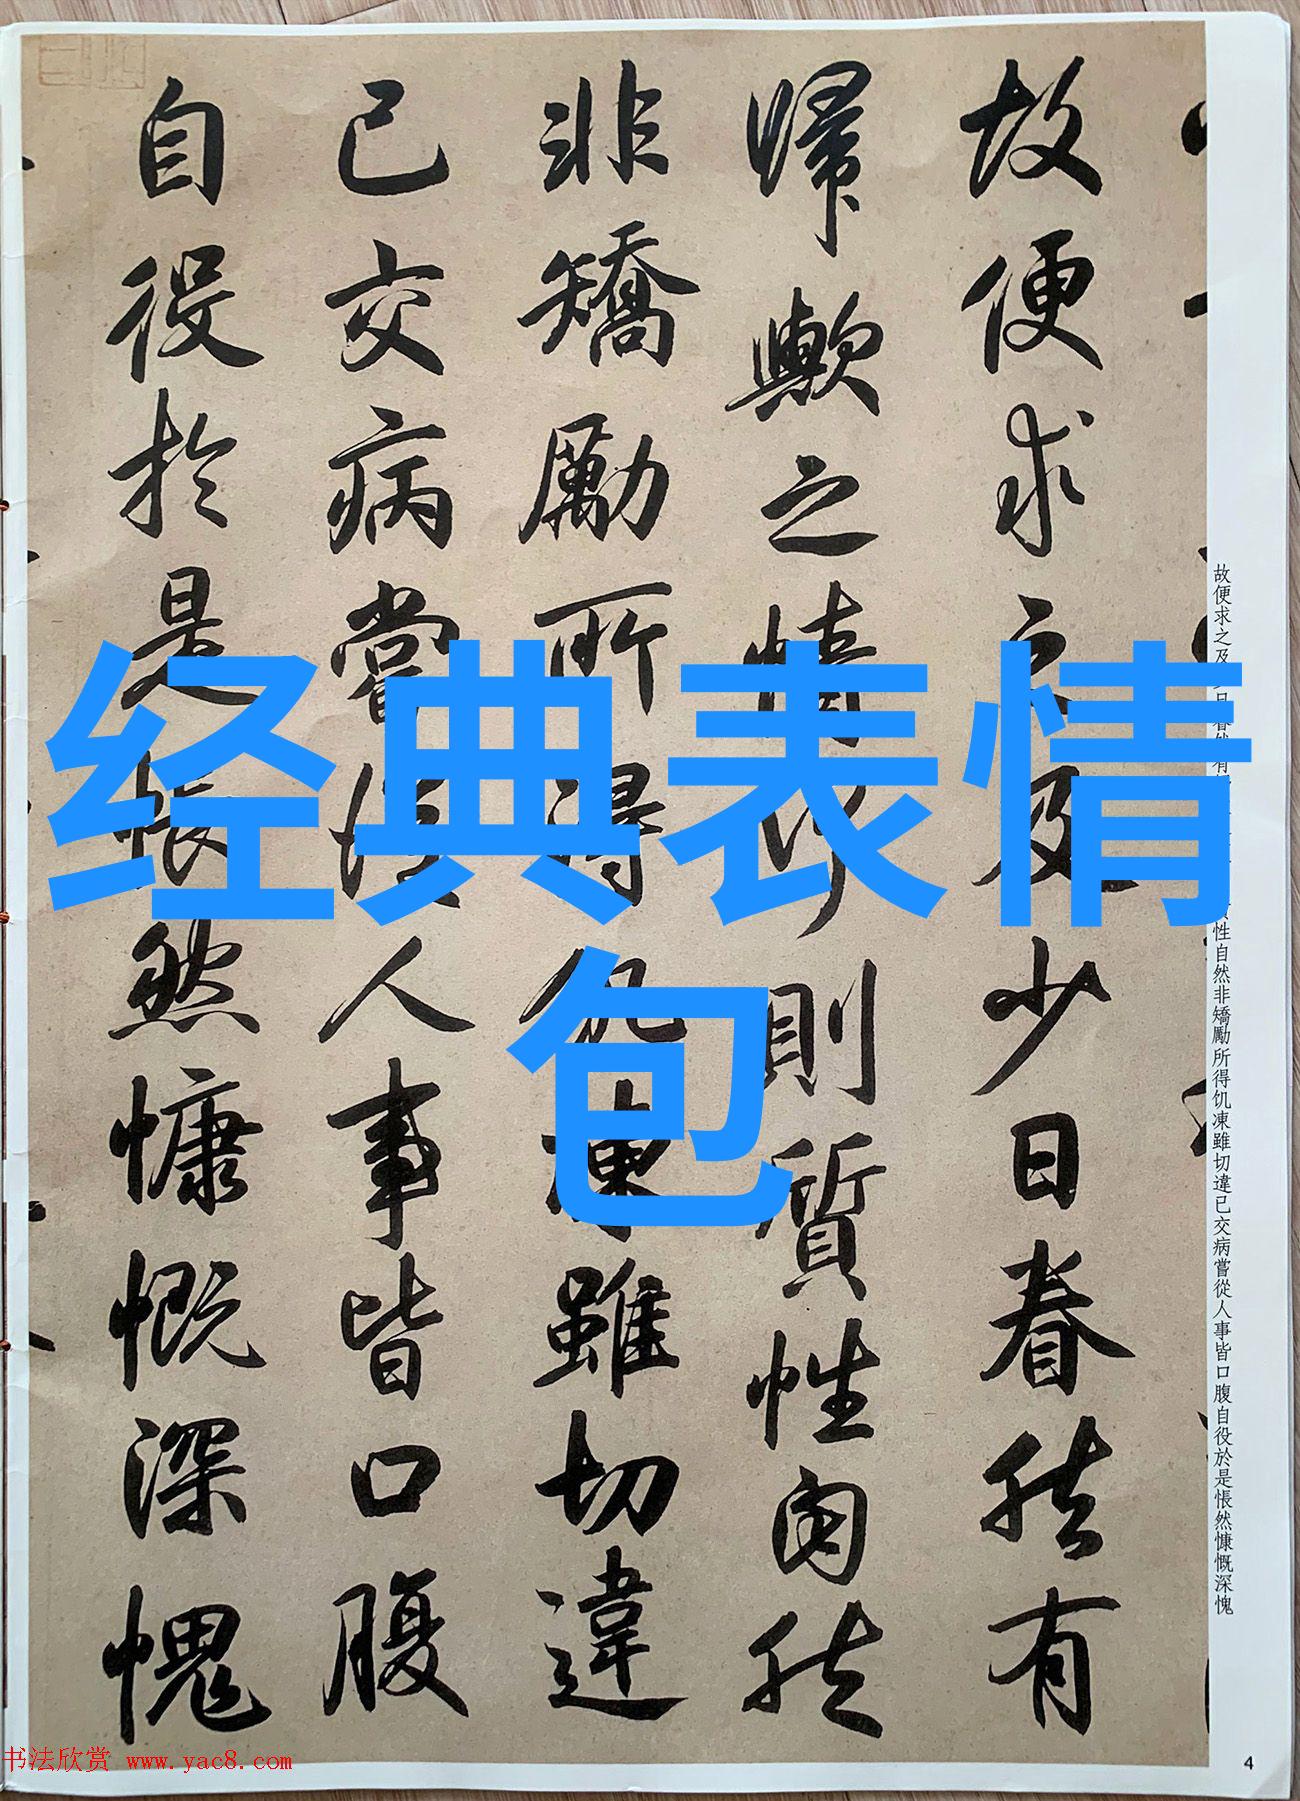 故便求之及少日眷然有
歸歟之情何則質性自然
非矯勵所得飢凍雖切違
已交病嘗從人事皆口腹
自役於是悵然慷慨深愧
经典表情
包
故便求之及少日眷然有 性自然非矯勵所得饥凍雖切違已交病嘗從人事皆口腹自役於是悵然慷慨深愧
4
书法欣赏 www.yac8.com